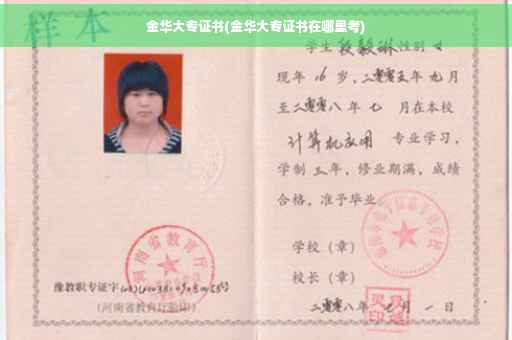 金华大专证书(金华大专证书在哪里考)
样本
学生段毅琳性别女
现年16岁，二零零五年九月
至二零零八年七月在本校
计算机应用 专业学习，
学制三年，修业期满，成绩
合格，准予毕业
学校（章）
校长（章）
二零零八年七月一日
河南省教育厅
豫教职专证字
(河南省教育厅验印)